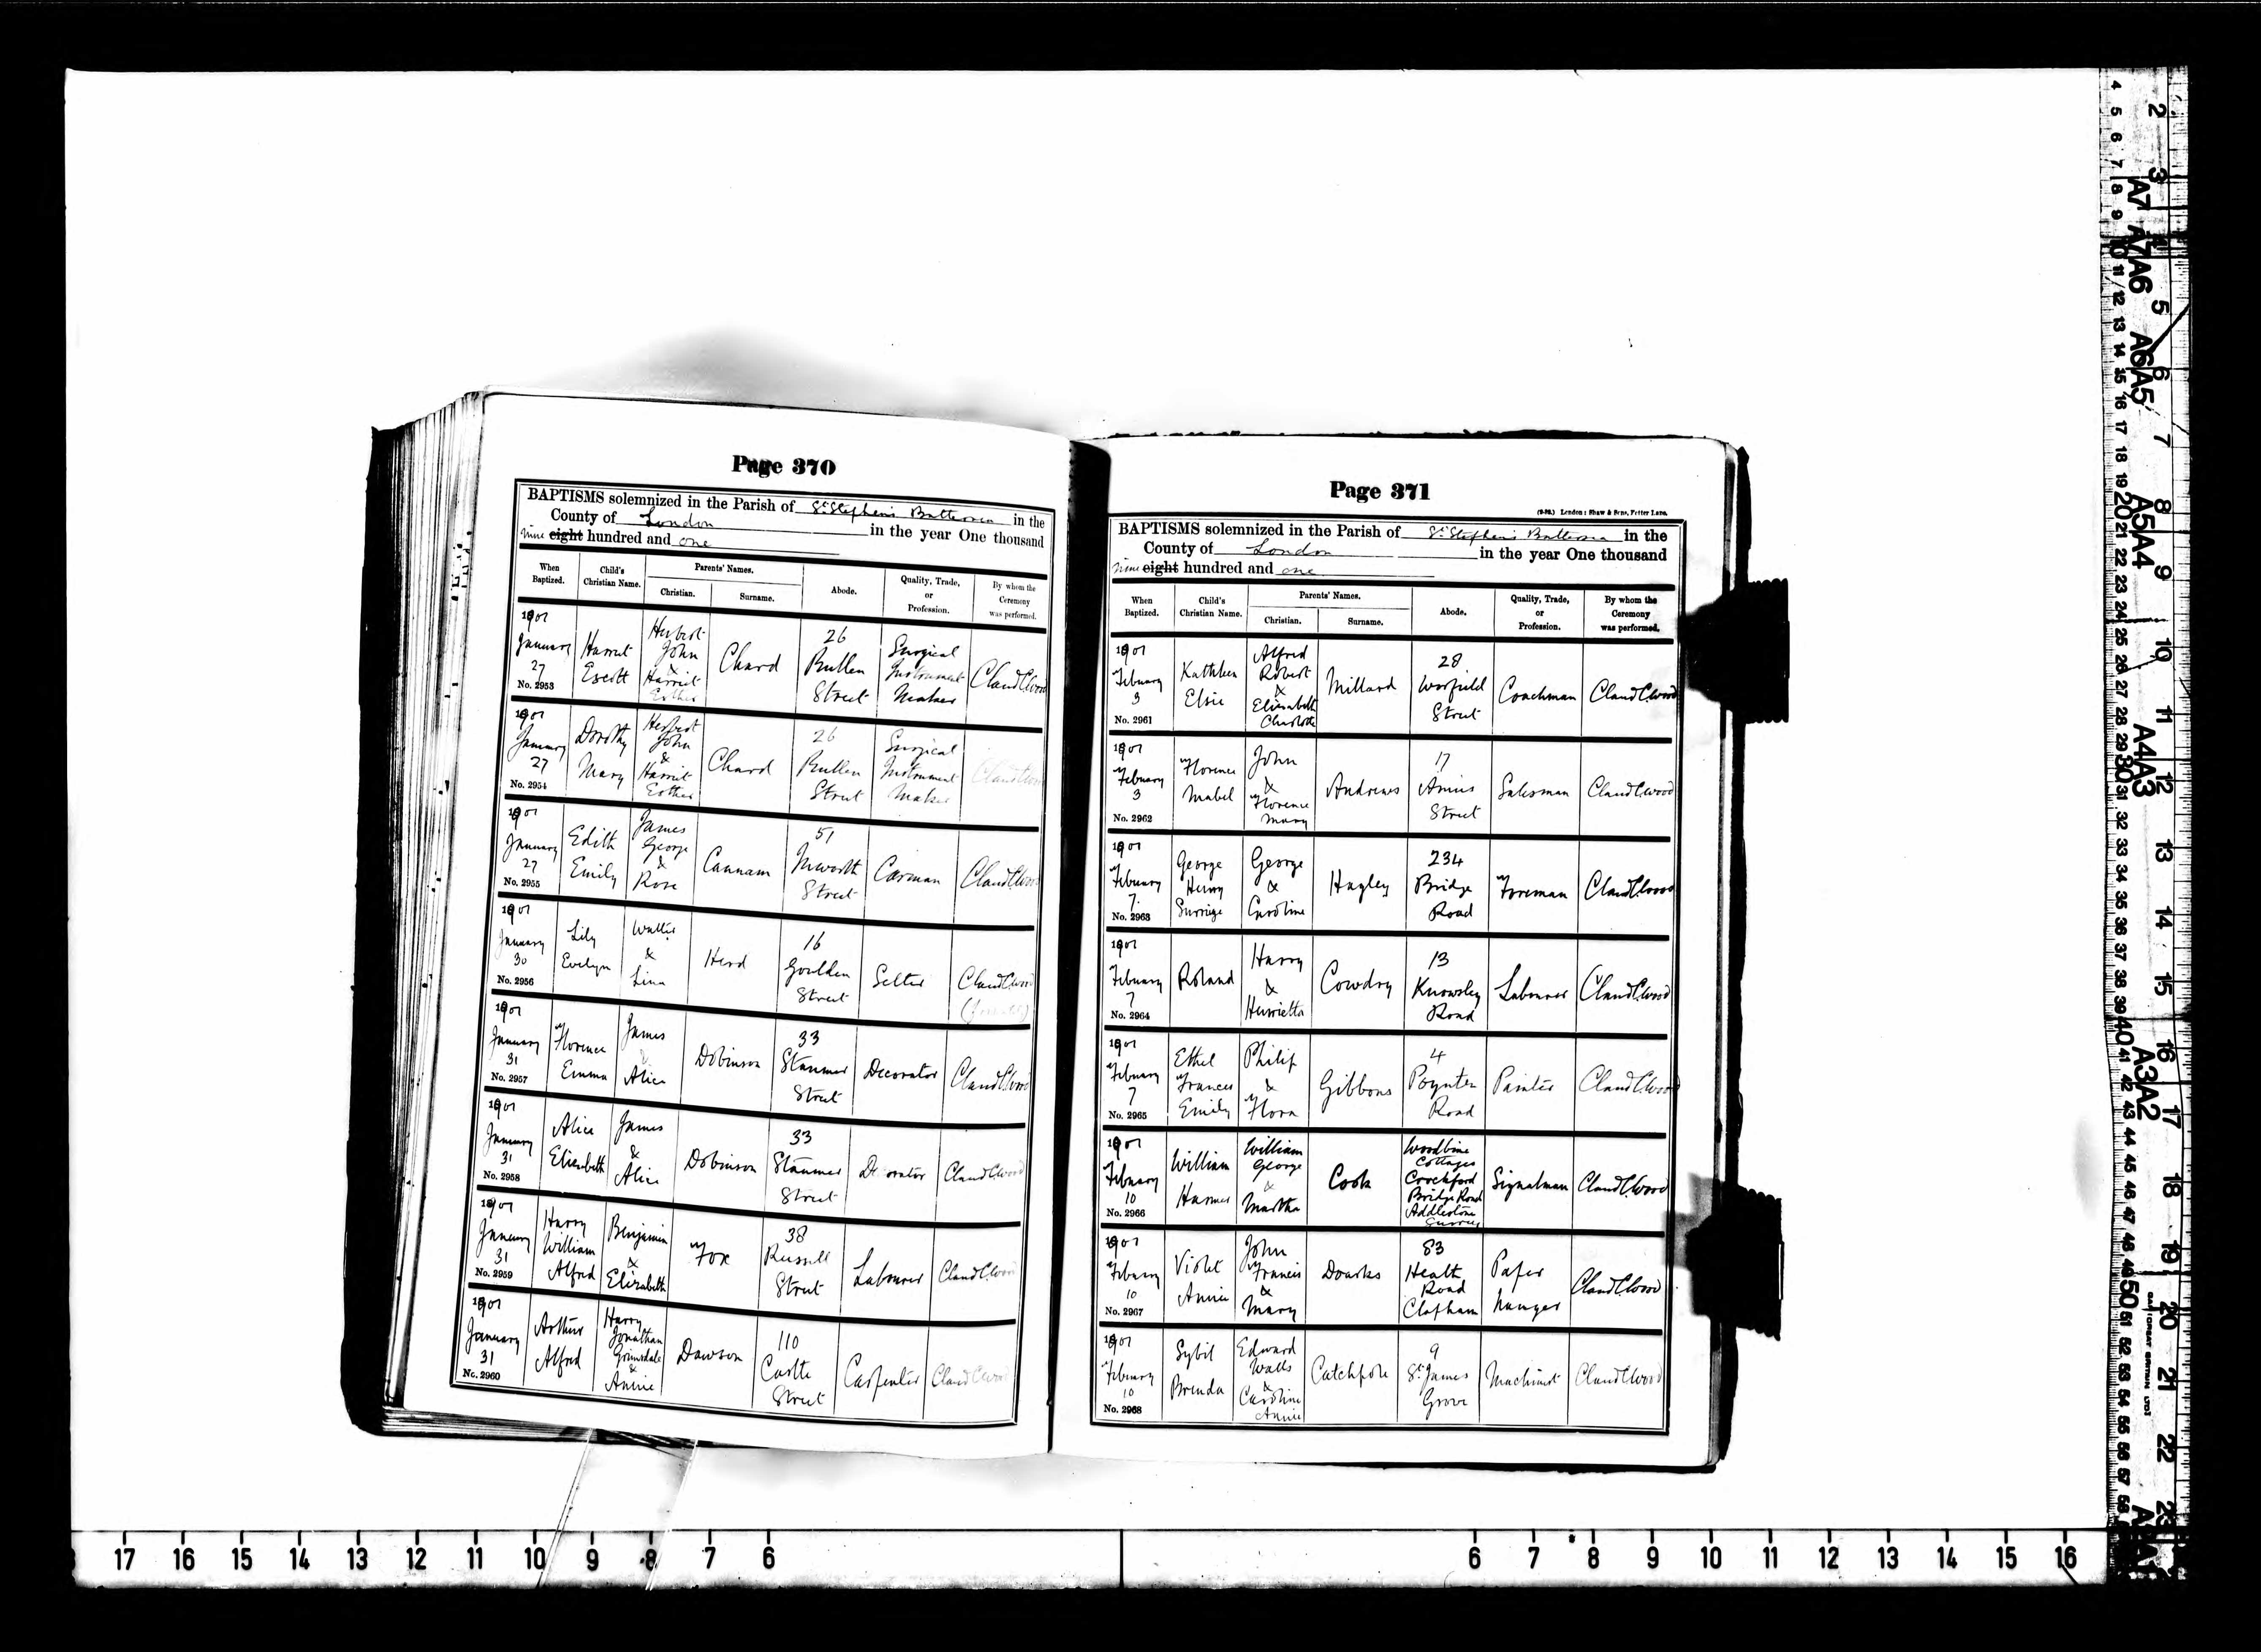 Page 370
BAPTISMS solemnized in the Parish of St Stephen's Battersea in the
County of London in the year One thousand
nine eight hundred and one
When Baptized.
Child's Christian Name.
Parents' Names.
Christian.
Surname.
Abode.
Quality, Trade, or Profession.
By whom the Ceremony was performed.
1901
January
27
No. 2953
Harriet
Escott
Herbert
John
&
Harriet
Esther
Chard
26
Bullen
Street
Surgical
Instrument
Maker
Claud C. Wood
1901
January
27
No. 2954
Dorothy
Mary
Herbert
John
&
Harriet
Esther
Chard
26
Bullen
Street
Surgical
Instrument
Maker
Claud C. Wood
1901
January
27
No. 2955
Edith
Emily
James
George
&
Rose
Cannam
51
Inworth
Street
Carman
Claud C. Wood
1901
January
30
No. 2956
Lily
Evelyn
&
Herd
16
Goulden
Street
Claud C. Wood
1901
January
31
No. 2957
Florence
Emma
James
&
Alice
Dobinson
33
Stanmer
Street
Decorator
Claud C. Wood
1901
January
31
No. 2958
Alice
Elizabeth
James
&
Alice
Dobinson
33
Stanmer
Street
Decorator
Claud C. Wood
1901
January
31
No. 2959
Harry
William
Alfred
Benjamin
&
Elizabeth
Fox
38
Russell
Street
Labourer
Claud C. Wood
1901
January
31
No. 2960
Arthur
Alfred
Harry
Jonathan
Grimsdale
&
Annie
Dawson
110
Castle
Street
Carpenter
Claud C. Wood
Page 371
(9-98.) London: Shaw & Sons, Fetter Lane.
BAPTISMS solemnized in the Parish of St Stephen's Battersea in the
County of London in the year One thousand
nine eight hundred and one
When Baptized.
Child's Christian Name.
Parents' Names.
Christian.
Surname.
Abode.
Quality, Trade, or Profession.
By whom the Ceremony was performed.
1901
February
3
No. 2961
Kathleen
Elsie
Alfred
Robert
&
Elizabeth
Charlotte
Millard
28
Worfield
Street
Coachman
Claud C. Wood
1901
February
3
No. 2962
Florence
Mabel
John
&
Florence
Mary
Andrews
17
Amies
Street
Salesman
Claud C. Wood
1901
February
7
No. 2963
George
Henry
George
&
Caroline
Hugley
234
Bridge
Road
Foreman
Claud C. Wood
1901
February
7
No. 2964
Roland
Harry
&
Henrietta
Cowdry
13
Knowsley
Road
Labourer
Claud C. Wood
1901
February
7
No. 2965
Ethel
Frances
Emily
Philip
&
Flora
Gibbons
4
Poynter
Road
Painter
Claud C. Wood
1901
February
10
No. 2966
William
Harmer
William
George
&
Martha
Cook
Woodbine
Cottages
Coochford
Bridge Road
Addlestone
Surrey
Signalman
Claud C. Wood
1901
February
10
No. 2967
Violet
Annie
John
Francis
&
Mary
Doarks
83
Heath
Road
Clapham
Paper
hanger
Claud C. Wood
1901
February
10
No. 2968
Sybil
Brenda
Edward
Watts
&
Caroline
Annie
Catchpole
9
St James
Grove
Machinist
Claud C. Wood
17 16 15 14 13 12 11 10 9 8 7 6
6 7 8 9 10 11 12 13 14 15 16